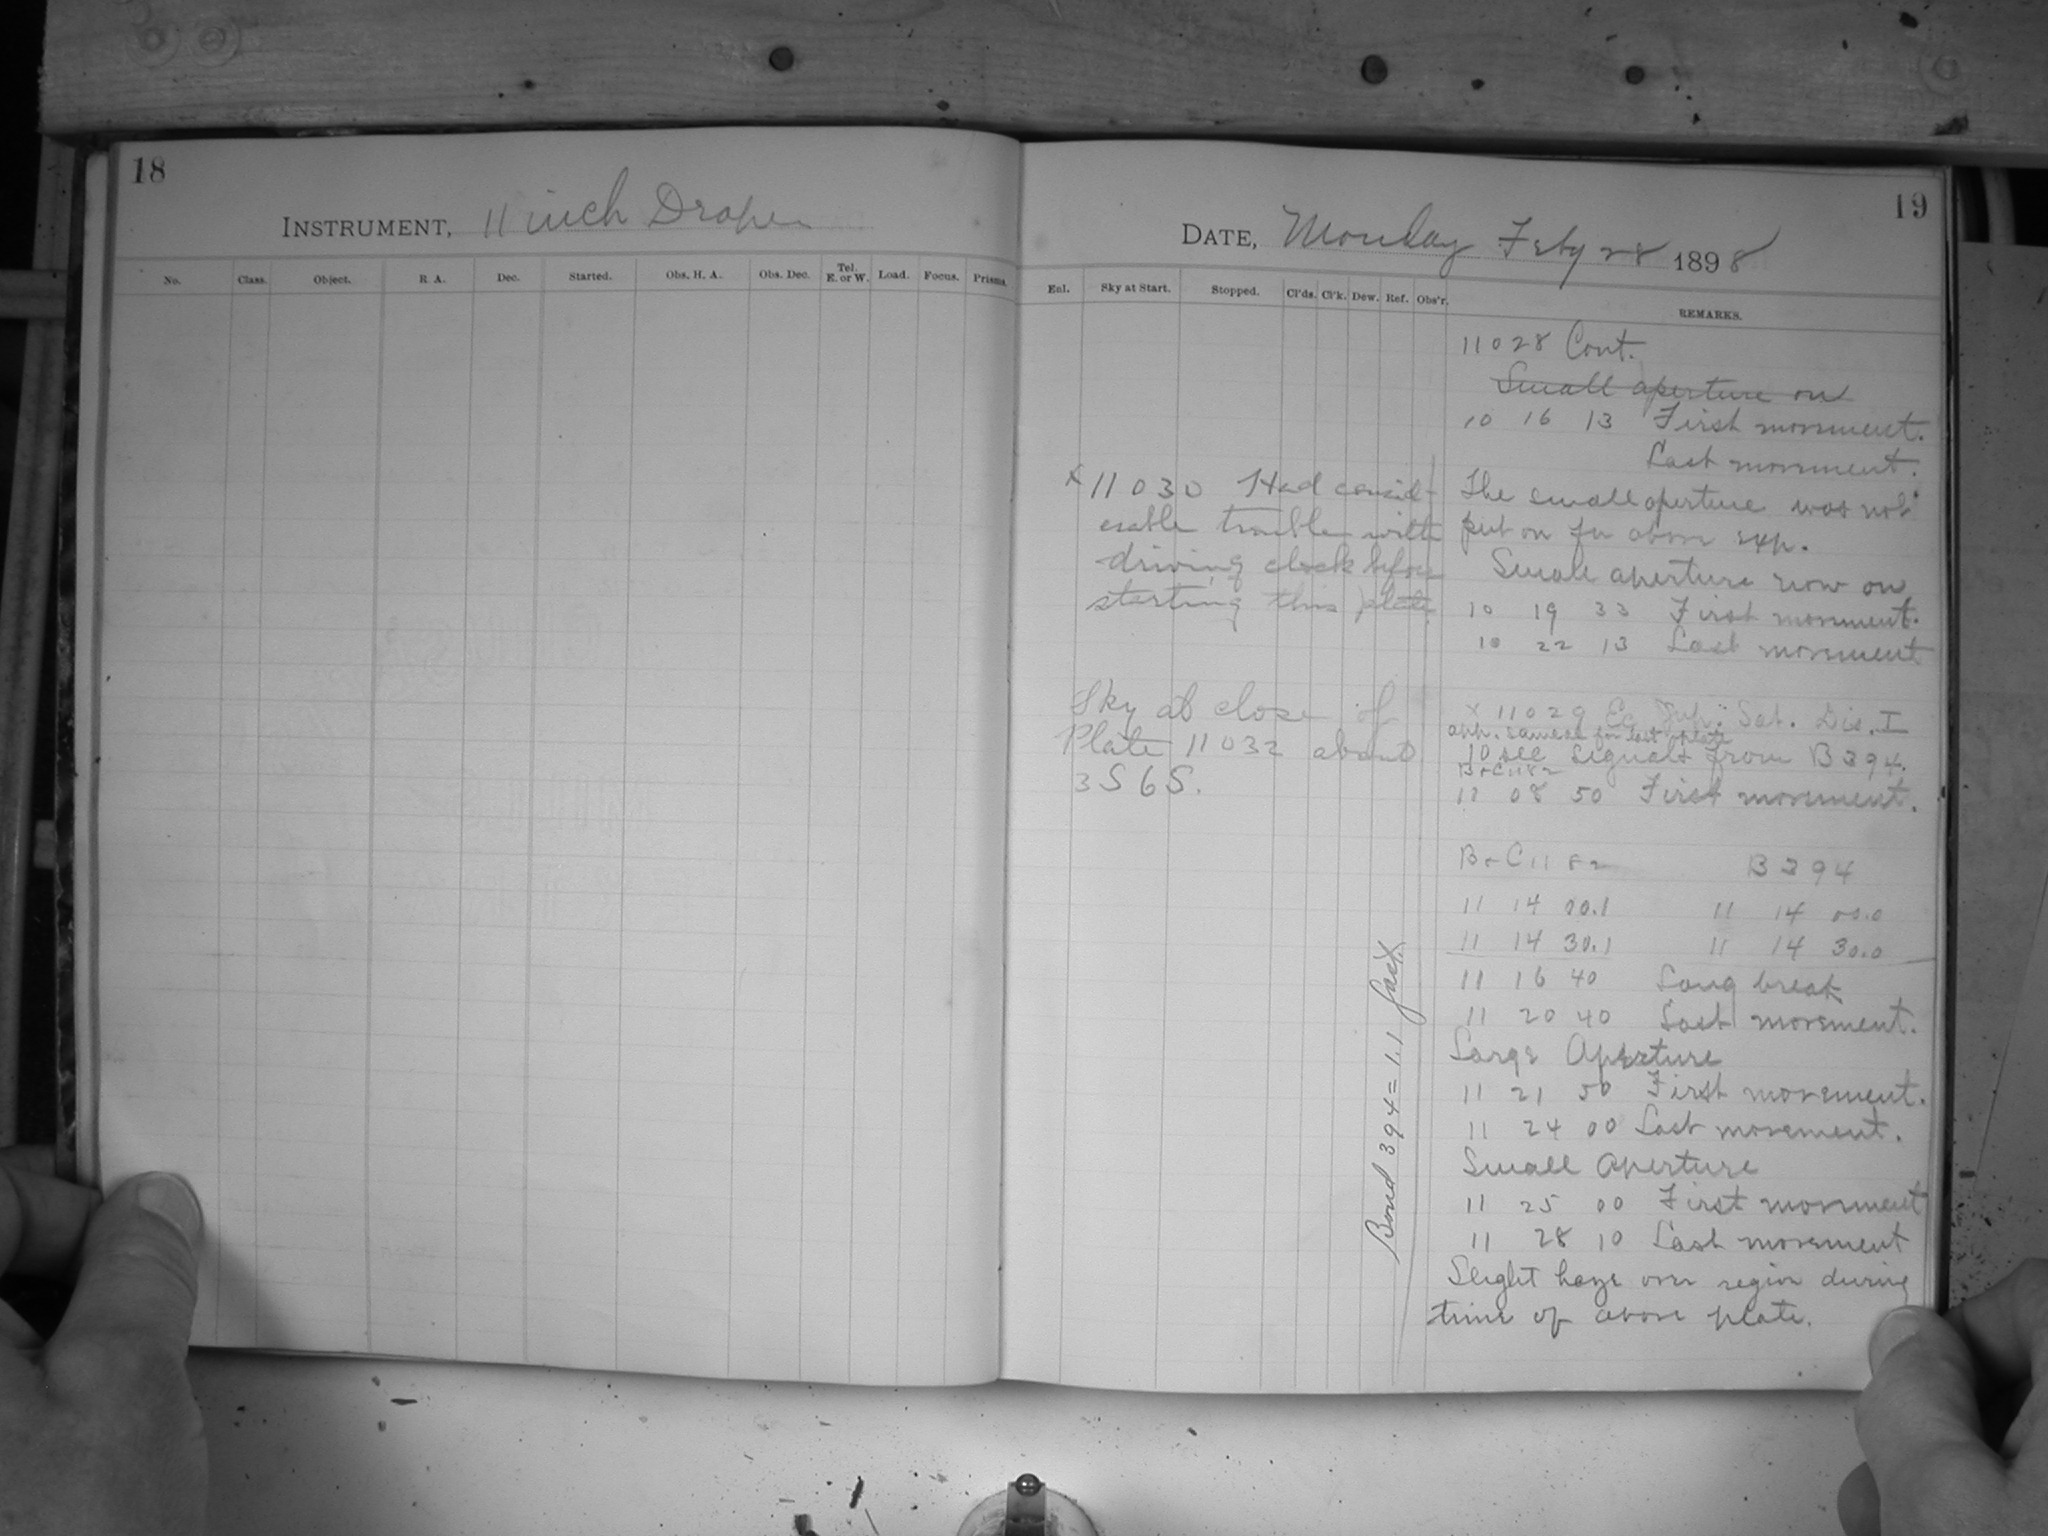 18
INSTRUMENT, 11 inch Draper
No. Class. Object. R A. Dec. Started. Obs. H. A. Obs. Dec. Tel. E. or W. Load. Focus. Prisms.
19
DATE, Monday Feby 28 1898
Enl. Sky at Start. Stopped. Cl'ds. Cl'k. Dew. Ref. Obs'r. REMARKS.
x 11030 Had consid-
erable trouble with
driving clock before
starting this plate
Sky at close of
Plate 11032 about
3S6S.
Bond 394 = 1.1 fast
11028 Cont.
Small aperture on
10 16 13 First movement.
Last movement.
The small aperture was not
put on for above exp.
Small aperture now on
10 19 33 First movement.
10 22 13 Last movement
x 11029 Ec. Jup. Sat. Dis. I
app. same as for last plate
10 sec signals from B 394.
B+C 1182
11 08 50 First movement.
B+C 1182 B 394
11 14 00.1 11 14 00.0
11 14 30.1 11 14 30.0
11 16 40 Long break
11 20 40 Last movement.
Large Aperture
11 21 50 First movement.
11 24 00 Last movement.
Small Aperture
11 25 00 First movement
11 28 10 Last movement
Slight haze over region during
time of above plate.